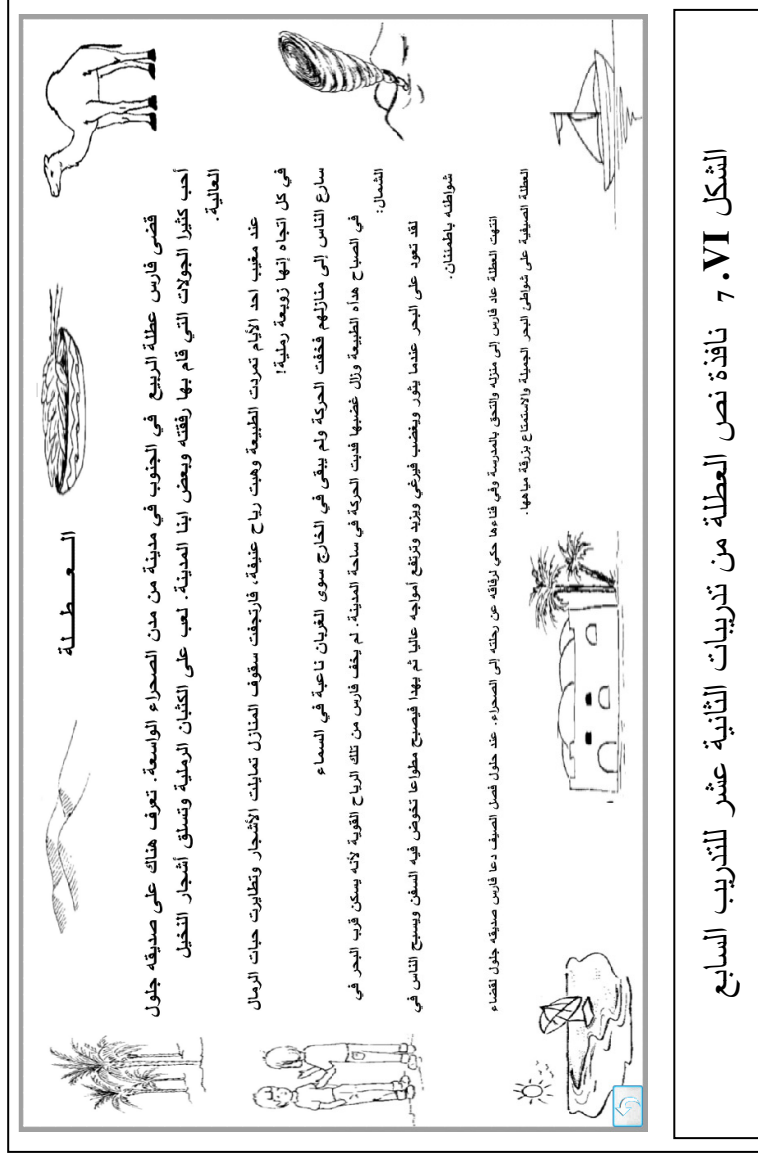 العطلة
قضى فارس عطلة الربيع في الجنوب في مدينة من مدن الصحراء الواسعة. تعرف هناك على صديقه جلول
أحب كثيرا الجولات التي قام بها رفقته وبعض ابنا المدينة. لعب على الكثبان الرملية وتسلق أشجار النخيل
العالية.
عند مغيب احد الأيام تمردت الطبيعة وهبت رياح عنيفة، فارتجفت سقوف المنازل تمايلت الأشجار وتطايرت حبات الرمال
في كل اتجاه إنها زوبعة رملية!
سارع الناس إلى منازلهم فخفت الحركة ولم يبقى في الخارج سوى الغربان ناعبة في السماء
في الصباح هدأه الطبيعة وزال غضبها فدبت الحركة في ساحة المدينة. لم يخف فارس من تلك الرياح القوية لأنه يسكن قرب البحر في
الشمال:
لقد تعود على البحر عندما يثور ويغضب فيرغي ويزبد وترتفع أمواجه عاليا ثم يهدا فيصبح مطواعا تخوض فيه السفن ويسبح الناس في
شواطئه باطمئنان.
انتهت العطلة عاد فارس إلى منزله والتحق بالمدرسة وفي فناءها حكى لرفاقه عن رحلته إلى الصحراء. عند حلول فصل الصيف دعا فارس صديقه جلول لقضاء
العطلة الصيفية على شواطئ البحر الجميلة والاستمتاع بزرقة مياهها.
الشكل VI. 7 نافذة نص العطلة من تدريبات الثانية عشر للتدريب السابع